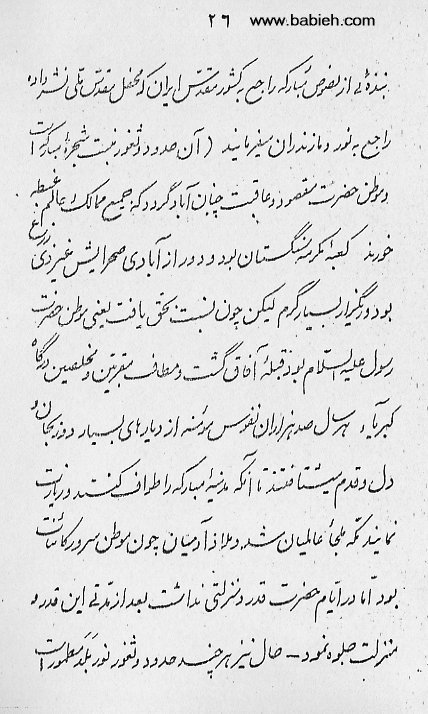 ٢٦ www.babieh.com
نبذهٔ از نصوص مبارکه راجع به کشور مقدّس ایران که محفل مقدّس ملّی نشر داده
راجع به نور و مازندران میفرمایند ( آن حدود و ثغور منبت شجرهٔ مبارکه است
و موطن حضرت مقصود و عاقبت چنان آباد گردد که جمیع ممالک عالم غبطه
خورند کعبهٔ مکرمه سنگستان بود و دور از آبادی صحرایش غیر ذی زرع
بود و ریگزار بسیار گرم لیکن چون نسبت تحقق یافت یعنی موطن حضرت
رسول علیه السّلام بود قبلهٔ آفاق گشت و مطاف مقربین و مخلصین درگاه
کبریاء هر سال صد هزاران نفوس مؤمنه از دیارهای بسیار دور بجان و
دل و قدم میشتافتند تا آنکه مدینهٔ مبارکه را طواف کنند و زیارت
نمایند مکّه ملجأ عالمیان شد و ملاذ آدمیان چون موطن سرور کائنات
بود امّا در ایّام حضرت قدر و منزلتی نداشت بعد از مدّتی این قدر و
منزلت جلوه نمود – حال نیز هر چند حدود و ثغور نور بلد مطمور است